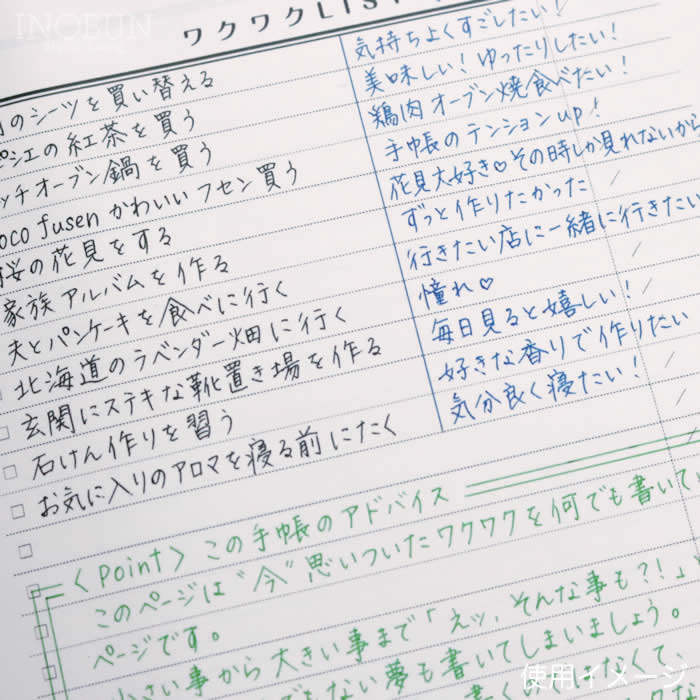 INOBUN
ワクワクLIST
のシーツを買い替える 気持ちよくすごしたい!
ピシエの紅茶を買う 美味しい!ゆったりしたい!
ッチオーブン鍋を買う 鶏肉オーブン焼食べたい!
oco fusen かわいいフセン買う 手帳のテンションup!
桜の花見をする 花見大好き♡その時しか見れないから
家族アルバムを作る ずっと作りたかった
夫とパンケーキを食べに行く 行きたい店に一緒に行きたい
北海道のラベンダー畑に行く 憧れ♡
玄関にステキな靴置き場を作る 毎日見ると嬉しい!
石けん作りを習う 好きな香りで作りたい
お気に入りのアロマを寝る前にたく 気分良く寝たい!
<point> この手帳のアドバイス
このページは"今"思いついたワクワクを何でも書いて
ページです。
小さい事から大きい事まで「えッ、そんな事も?!」
でもない夢も書いてしまいましょう。
なくて、
使用イメージ